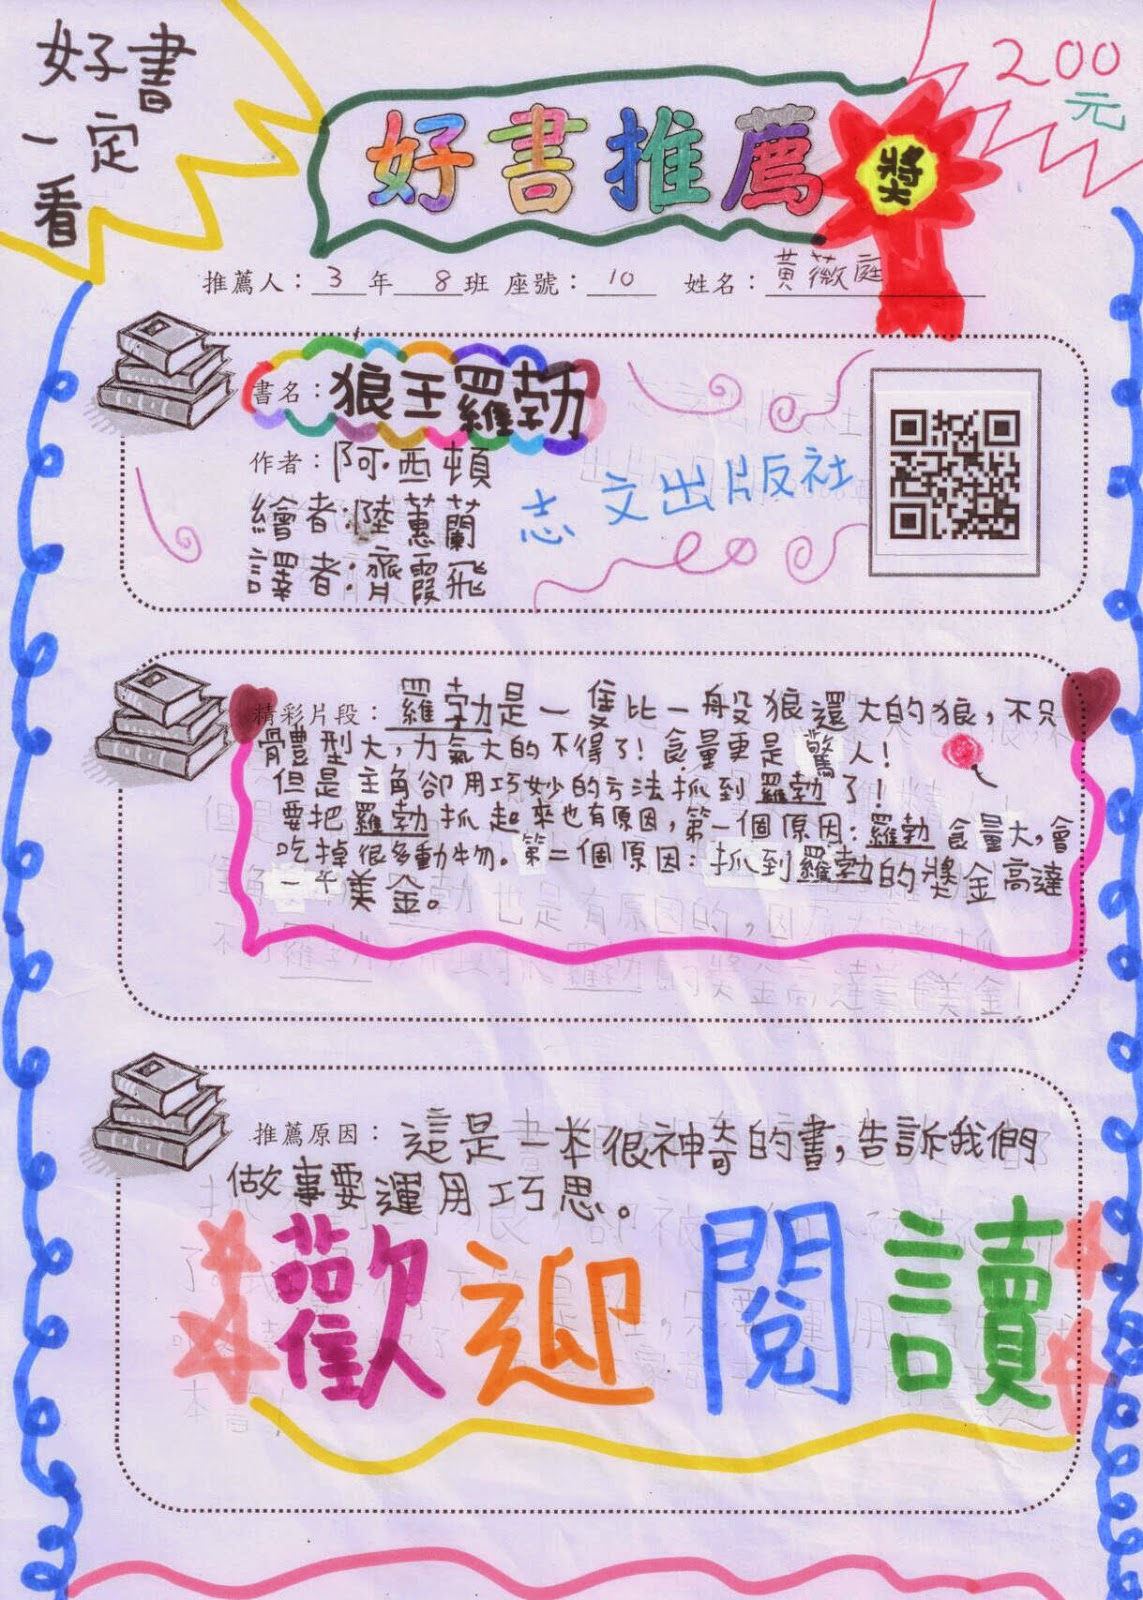 好書
一定
看
好書推薦
獎
200
元
推薦人：3年8班 座號：10 姓名：黃薇庭
書名：狼王羅勃
作者：阿·西頓
繪者：陸蕙蘭
譯者：齊霞飛
志文出版社
精彩片段：羅勃是一隻比一般狼還大的狼，不只
體型大，力氣大的不得了！食量更是驚人！
但是主角卻用巧妙的方法抓到羅勃了！
要把羅勃抓起來也有原因，第一個原因：羅勃食量大，會
吃掉很多動物。第二個原因：抓到羅勃的獎金高達
一千美金。
推薦原因：這是一本很神奇的書，告訴我們
做事要運用巧思。
歡迎閱讀